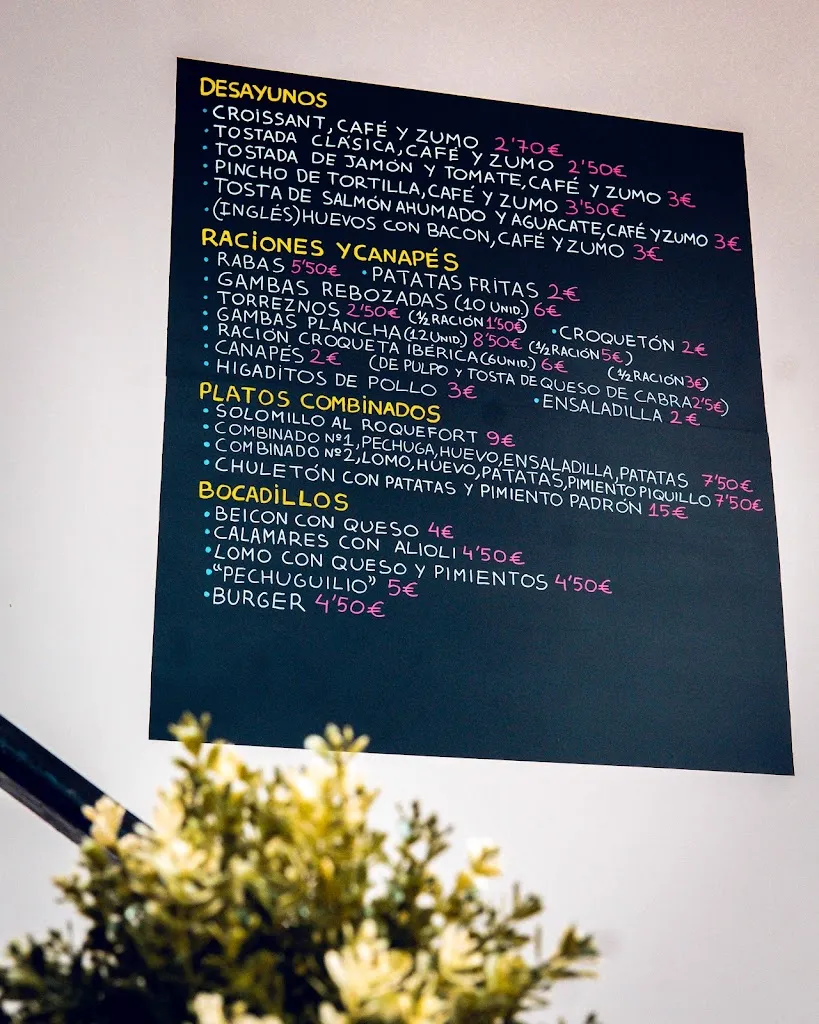 DESAYUNOS
• CROISSANT, CAFÉ Y ZUMO 2'70€
• TOSTADA CLÁSICA, CAFÉ Y ZUMO 2'50€
• TOSTADA DE JAMÓN Y TOMATE, CAFÉ Y ZUMO 3€
• PINCHO DE TORTILLA, CAFÉ Y ZUMO 3'50€
• TOSTA DE SALMÓN AHUMADO Y AGUACATE, CAFÉ Y ZUMO 3€
• (INGLÉS) HUEVOS CON BACON, CAFÉ Y ZUMO 3€
RACIONES Y CANAPÉS
• RABAS 5'50€ • PATATAS FRITAS 2€
• GAMBAS REBOZADAS (10 UNID.) 6€
• TORREZNOS 2'50€ (½ RACIÓN 1'50€) • CROQUETÓN 2€
• GAMBAS PLANCHA (12 UNID.) 8'50€ (½ RACIÓN 5€)
• RACIÓN CROQUETA IBÉRICA (6 UNID.) 6€ (½ RACIÓN 3€)
• CANAPÉS 2€ (DE PULPO Y TOSTA DE QUESO DE CABRA 2'5€)
• HIGADITOS DE POLLO 3€ • ENSALADILLA 2€
PLATOS COMBINADOS
• SOLOMILLO AL ROQUEFORT 9€
• COMBINADO Nº1, PECHUGA, HUEVO, ENSALADILLA, PATATAS 7'50€
• COMBINADO Nº2, LOMO, HUEVO, PATATAS, PIMIENTO PIQUILLO 7'50€
• CHULETÓN CON PATATAS Y PIMIENTO PADRÓN 15€
BOCADILLOS
• BEICON CON QUESO 4€
• CALAMARES CON ALIOLI 4'50€
• LOMO CON QUESO Y PIMIENTOS 4'50€
• "PECHUGUILIO" 5€
• BURGER 4'50€